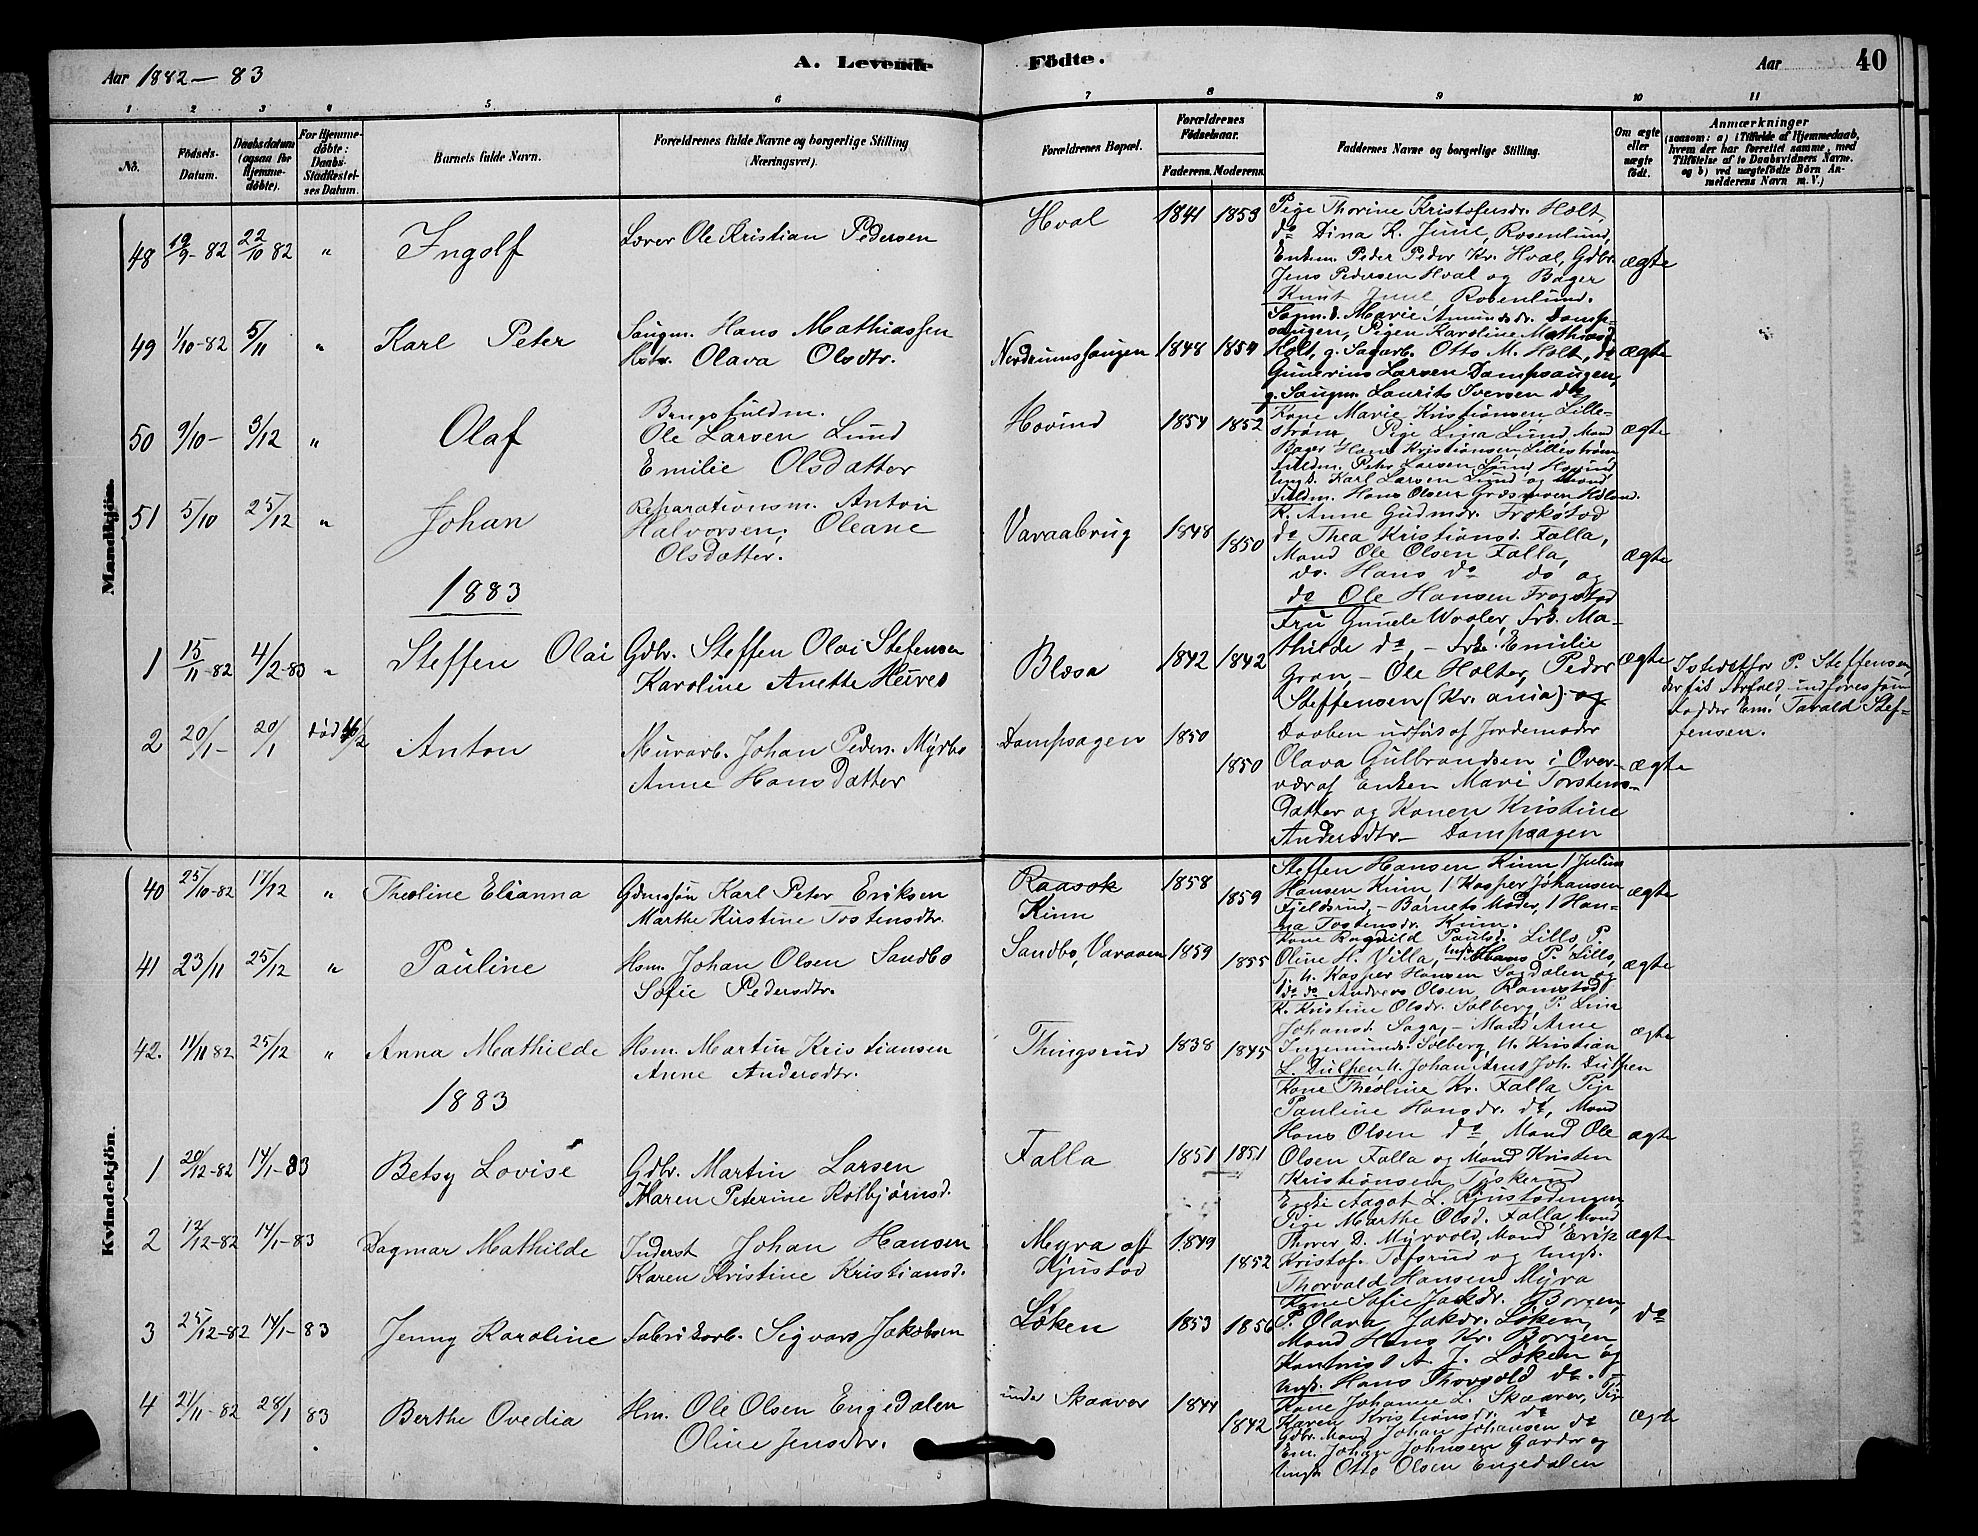 Aar 1882-83
A. Levende Födte.
Aar
40
1 2 3 4 5 6 7 8 9 10 11
No.
Födsels-Datum.
Daabsdatum (ogsaa for Hjemmedöbte).
For Hjemmedöbte: Daabs-Stadfæstelses Datum.
Barnets fulde Navn.
Forældrenes fulde Navne og borgerlige Stilling (Næringsvei).
Forældrenes Bopæl.
Forældrenes Födselsaar.
Faderens. Moderens.
Faddernes Navne og borgerlige Stilling.
Om ægte eller uægte födt.
Anmærkninger
(saasom: a) i Tilfælde af Hjemmedaab,
hvem der har forrettet samme, med
Tilföielse af to Daabsvidners Navne.
og b) ved uægtefödte Börn An-
melderens Navn m. V.)
Mandkjön.
48 19/9-82 22/10 82 " Ingolf
Lærer Ole Kristian Pedersen
Hval 1841 1859
Pige Thorine Kristofersdr. Holt,
do Dina K. Juul, Rosenlund,
Enkem. Peder Peder Kr. Hval, Gdbr.
Jens Pedersen Hval og Bager
Knut Juul Rosenlund.
ægte
49 1/10-82 5/11 " Karl Peter
Saugm. Hans Mathiassen
Hstr. Olava Olsdtr.
Nordrumssaugen 1848 1854
Sagm.d. Marie Amundsdr. Damp-
saugen, Pigen Karoline Mathiasd.
Holt, g. Sagarb. Otto M. Holt, do
Gunerius Larsen Dampsaugen,
g. Saugm. Laurits Iversen do
ægte
50 9/10- 3/12 " Olaf
Brugsfuldm.
Ole Larsen Lund
Emilie Olsdatter
Hovind 1854 1852
Kone Marie Kristiansen Lille-
strøm, Pige Lina Lund, Mand
Bager Hans Kristiansen Lillestrøm
Fuldm. Peter Larsen Lund Hovind
Ungk. Karl Larsen Lund og Mand
Fuldm. Hans Olsen Græsmoen Høland.
ægte
51 5/10 25/12 " Johan
Reparationsm. Anton
Halvorsen, Oleane
Olsdatter.
Varaabrug 1848 1850
K. Anne Gudmdr. Frokstad
do Thea Kristiansd. Falla,
Mand Ole Olsen Falla,
do. Hans do do og
do Ole Hansen Frogstad
ægte
1883
1 15/11-82 4/2-83 " Steffen Olai
Gdbr. Steffen Olai Stefensen
Karoline Anette
Blæsa 1842 1842
Fru Gunele Wooler, Frk. Ma-
thilde do, - Frk. Emilie
Gran, - Ole Holter, Peder
Steffensen (Kr.ania) og
ægte
Istedetfor P. Steffensen,
der fik Forfald, indføres som
Fadder Em. Tarald Stef-
fensen.
2 20/1- 20/1 død 16/2 Anton
Murarb. Johan Peders. Myrbo
Anne Hansdatter
Dampsagen 1850 1850
Daaben udført af Jordemoder
Olava Gulbrandsen i Over-
vær af Enken Mari Torstens-
datter og Konen Kristine
Andersdtr - Dampsagen
ægte
Kvindekjön.
40 25/10-82 17/12 " Theoline Elianna
Gdmssøn Karl Peter Eriksen
Marthe Kirstine Tostensdtr.
Raasok
Kinn 1858 1859
Steffen Hansen Kinn / Julius
Hansen Kinn / Kasper Johansen
Fjeldsrud, - Barnets Moder, / Han-
na Tostensdr. Kinn.
ægte
41 23/11 25/12 " Pauline
Hsm. Johan Olsen Sandbo
Sofie Pedersdtr.
Sandbo, Varaaen 1859 1855
Kone Ragnild Paulsd. Lills, P.
Oline H. Villa, Hans P. Lills,
Kasper Hansen Sagdalen og
do do Andreas Olsen, Ramstad
ægte
42. 11/11 82 25/12 " Anna Mathilde
Hsm. Martin Kristiansen
Anne Andersdtr.
Thingsrud 1838 1845
K. Kristine Olsdr. Solberg, P. Lina
Johansd. Saga, - Mand Arne
Ingemunds. Solberg, U. Kristian
L. Dulpen, U. Johan Arnt Joh. Dulpen
ægte
1883
1 20/12-82 14/1-83 Betsy Lovise
Gdbr. Martin Larsen
Karen Peterine Kolbjørnsd.
Falla 1851 1851
Kone Theoline Kr. Falla, Pige
Pauline Hansdr. do, Mand
Hans Olsen do, Mand Ole
Olsen Falla og Mand Kristen
Kristiansen Tyskerud
ægte
2 12/12-82 14/1-83 Dagmar Mathilde
Inderst Johan Hansen
Karen Kristine Kristiansd.
Myra aft
Kjustad 1849 1852
Enke Aagot L. Kjustadengen,
Pige Marthe Olsd. Falla, Mand
Thorer D. Myrvold, Mand Erik
Kristof. Tofsrud og Ungk.
Thorvald Hansen Myra
ægte
3 25/12-82 14/1-83 Jenny Karoline
Fabrikarb. Sigvars Jakobsen
Løken 1853 1856
Kone Sofie Jakdr. Borgen,
P. Olava Jakdr. Løken,
Mand Hans Kr. Borgen
Kontorist A. J. Løken og
Ungk. Hans Thorvald do.
do
4 21/11-82 28/1 83 Berthe Ovedia
Hm. Ole Olsen Engedalen
Oline Jensdr.
under Skaarer 1844 1842
Kone Johanne L. Skaarer, Pige
Karen Kristiansdr. do
Gdbr. Mand Johan Johansen do
Em. Johan Johnsen Garder og
Ungk. Otto Olsen Engedalen
ægte